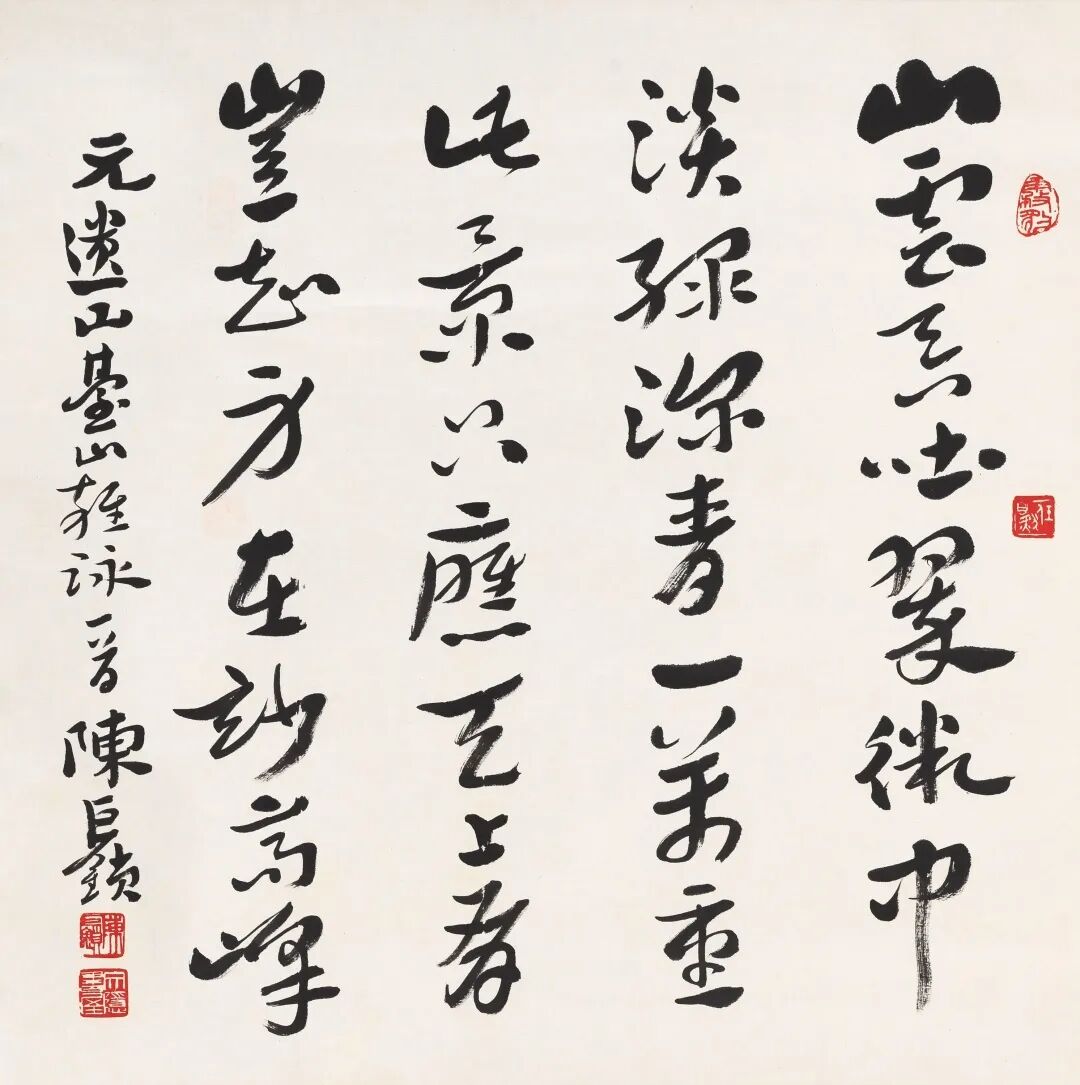 山雲吞吐翠微中
淡綠深青一萬重
此景只應天上有
豈知身在妙高峰
元遺山臺山雜詠一首陳巨鎖